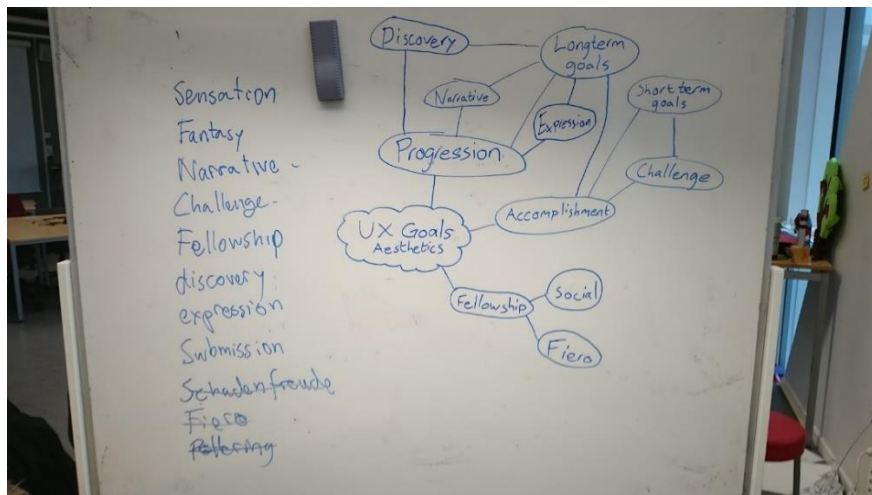 Sensation
Fantasy
Narrative -
Challenge-
Fellowship
discovery
expression
Submission
Schadenfreude
Fiero
Discovery
Longterm
goals
Narrative
Expression
Short term
goals
Progression
Challenge
Accomplishment
UX Goals
Aesthetics
Fellowship
Social
Fiero